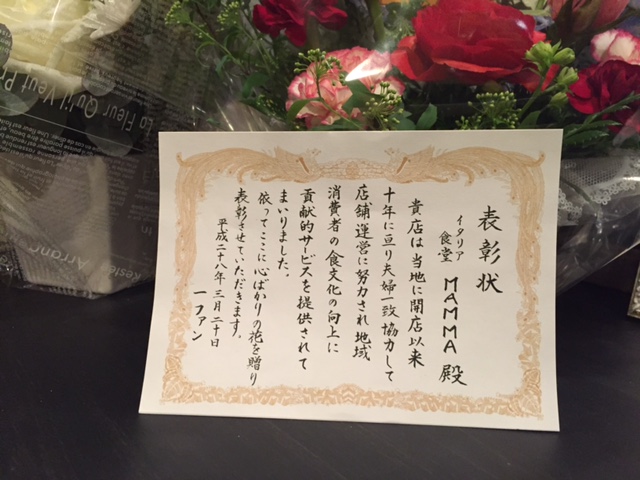 表彰状
イタリア
食堂 MAMMA 殿
貴店は当地に開店以来
十年に亘り夫婦一致協力して
店舗運営に努力され地域
消費者の食文化の向上に
貢献的サービスを提供されて
まいりました。
依ってここに心ばかりの花を贈り
表彰させていただきます。
平成二十八年三月二十日
一ファン
La Fleur Qu'il Veut Pr